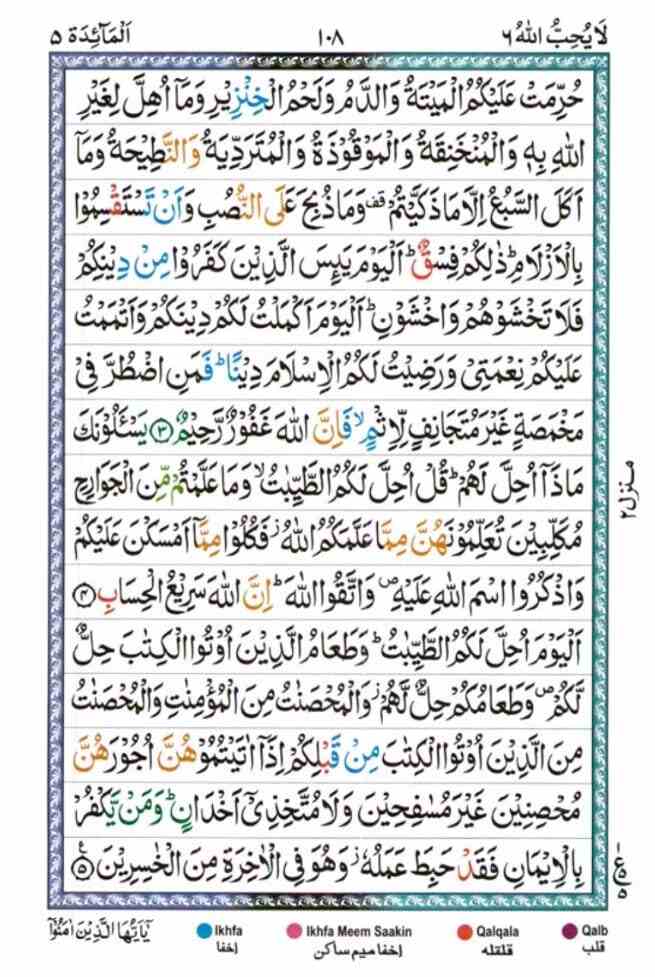 لَا يُحِبُّ اللّٰهُ ٦
١٠٨
اَلْمَآئِدَة ٥
حُرِّمَتْ عَلَيْكُمُ الْمَيْتَةُ وَالدَّمُ وَلَحْمُ الْخِنْزِيْرِ وَمَاۤ اُهِلَّ لِغَيْرِ
اللّٰهِ بِهٖ وَالْمُنْخَنِقَةُ وَالْمَوْقُوْذَةُ وَالْمُتَرَدِّيَةُ وَالنَّطِيْحَةُ وَمَاۤ
اَكَلَ السَّبُعُ اِلَّا مَا ذَكَّيْتُمْ ۫ وَمَا ذُبِحَ عَلَى النُّصُبِ وَاَنْ تَسْتَقْسِمُوْا
بِالْاَزْلَامِ ؕ ذٰلِكُمْ فِسْقٌ ؕ اَلْيَوْمَ يَئِسَ الَّذِيْنَ كَفَرُوْا مِنْ دِيْنِكُمْ
فَلَا تَخْشَوْهُمْ وَاخْشَوْنِ ؕ اَلْيَوْمَ اَكْمَلْتُ لَكُمْ دِيْنَكُمْ وَاَتْمَمْتُ
عَلَيْكُمْ نِعْمَتِيْ وَرَضِيْتُ لَكُمُ الْاِسْلَامَ دِيْنًا ؕ فَمَنِ اضْطُرَّ فِيْ
مَخْمَصَةٍ غَيْرَ مُتَجَانِفٍ لِّاِثْمٍ ۙ فَاِنَّ اللّٰهَ غَفُوْرٌ رَّحِيْمٌ ﴿٣﴾ يَسْـَٔلُوْنَكَ
مَاذَاۤ اُحِلَّ لَهُمْ ؕ قُلْ اُحِلَّ لَكُمُ الطَّيِّبٰتُ ۙ وَمَا عَلَّمْتُمْ مِّنَ الْجَوَارِحِ
مُكَلِّبِيْنَ تُعَلِّمُوْنَهُنَّ مِمَّا عَلَّمَكُمُ اللّٰهُ ؗ فَكُلُوْا مِمَّاۤ اَمْسَكْنَ عَلَيْكُمْ
وَاذْكُرُوا اسْمَ اللّٰهِ عَلَيْهِ ۪ وَاتَّقُوا اللّٰهَ ؕ اِنَّ اللّٰهَ سَرِيْعُ الْحِسَابِ ﴿٤﴾
اَلْيَوْمَ اُحِلَّ لَكُمُ الطَّيِّبٰتُ ؕ وَطَعَامُ الَّذِيْنَ اُوْتُوا الْكِتٰبَ حِلٌّ
لَّكُمْ ۪ وَطَعَامُكُمْ حِلٌّ لَّهُمْ ؗ وَالْمُحْصَنٰتُ مِنَ الْمُؤْمِنٰتِ وَالْمُحْصَنٰتُ
مِنَ الَّذِيْنَ اُوْتُوا الْكِتٰبَ مِنْ قَبْلِكُمْ اِذَاۤ اٰتَيْتُمُوْهُنَّ اُجُوْرَهُنَّ
مُحْصِنِيْنَ غَيْرَ مُسٰفِحِيْنَ وَلَا مُتَّخِذِيْۤ اَخْدَانٍ ؕ وَمَنْ يَّكْفُرْ
بِالْاِيْمَانِ فَقَدْ حَبِطَ عَمَلُهٗ ؗ وَهُوَ فِي الْاٰخِرَةِ مِنَ الْخٰسِرِيْنَ ﴿٥﴾
منزل ٢
يٰۤاَيُّهَا الَّذِيْنَ اٰمَنُوْۤا
Ikhfa
اخفا
Ikhfa Meem Saakin
اخفا میم ساکن
Qalqala
قلقله
Qalb
قلب